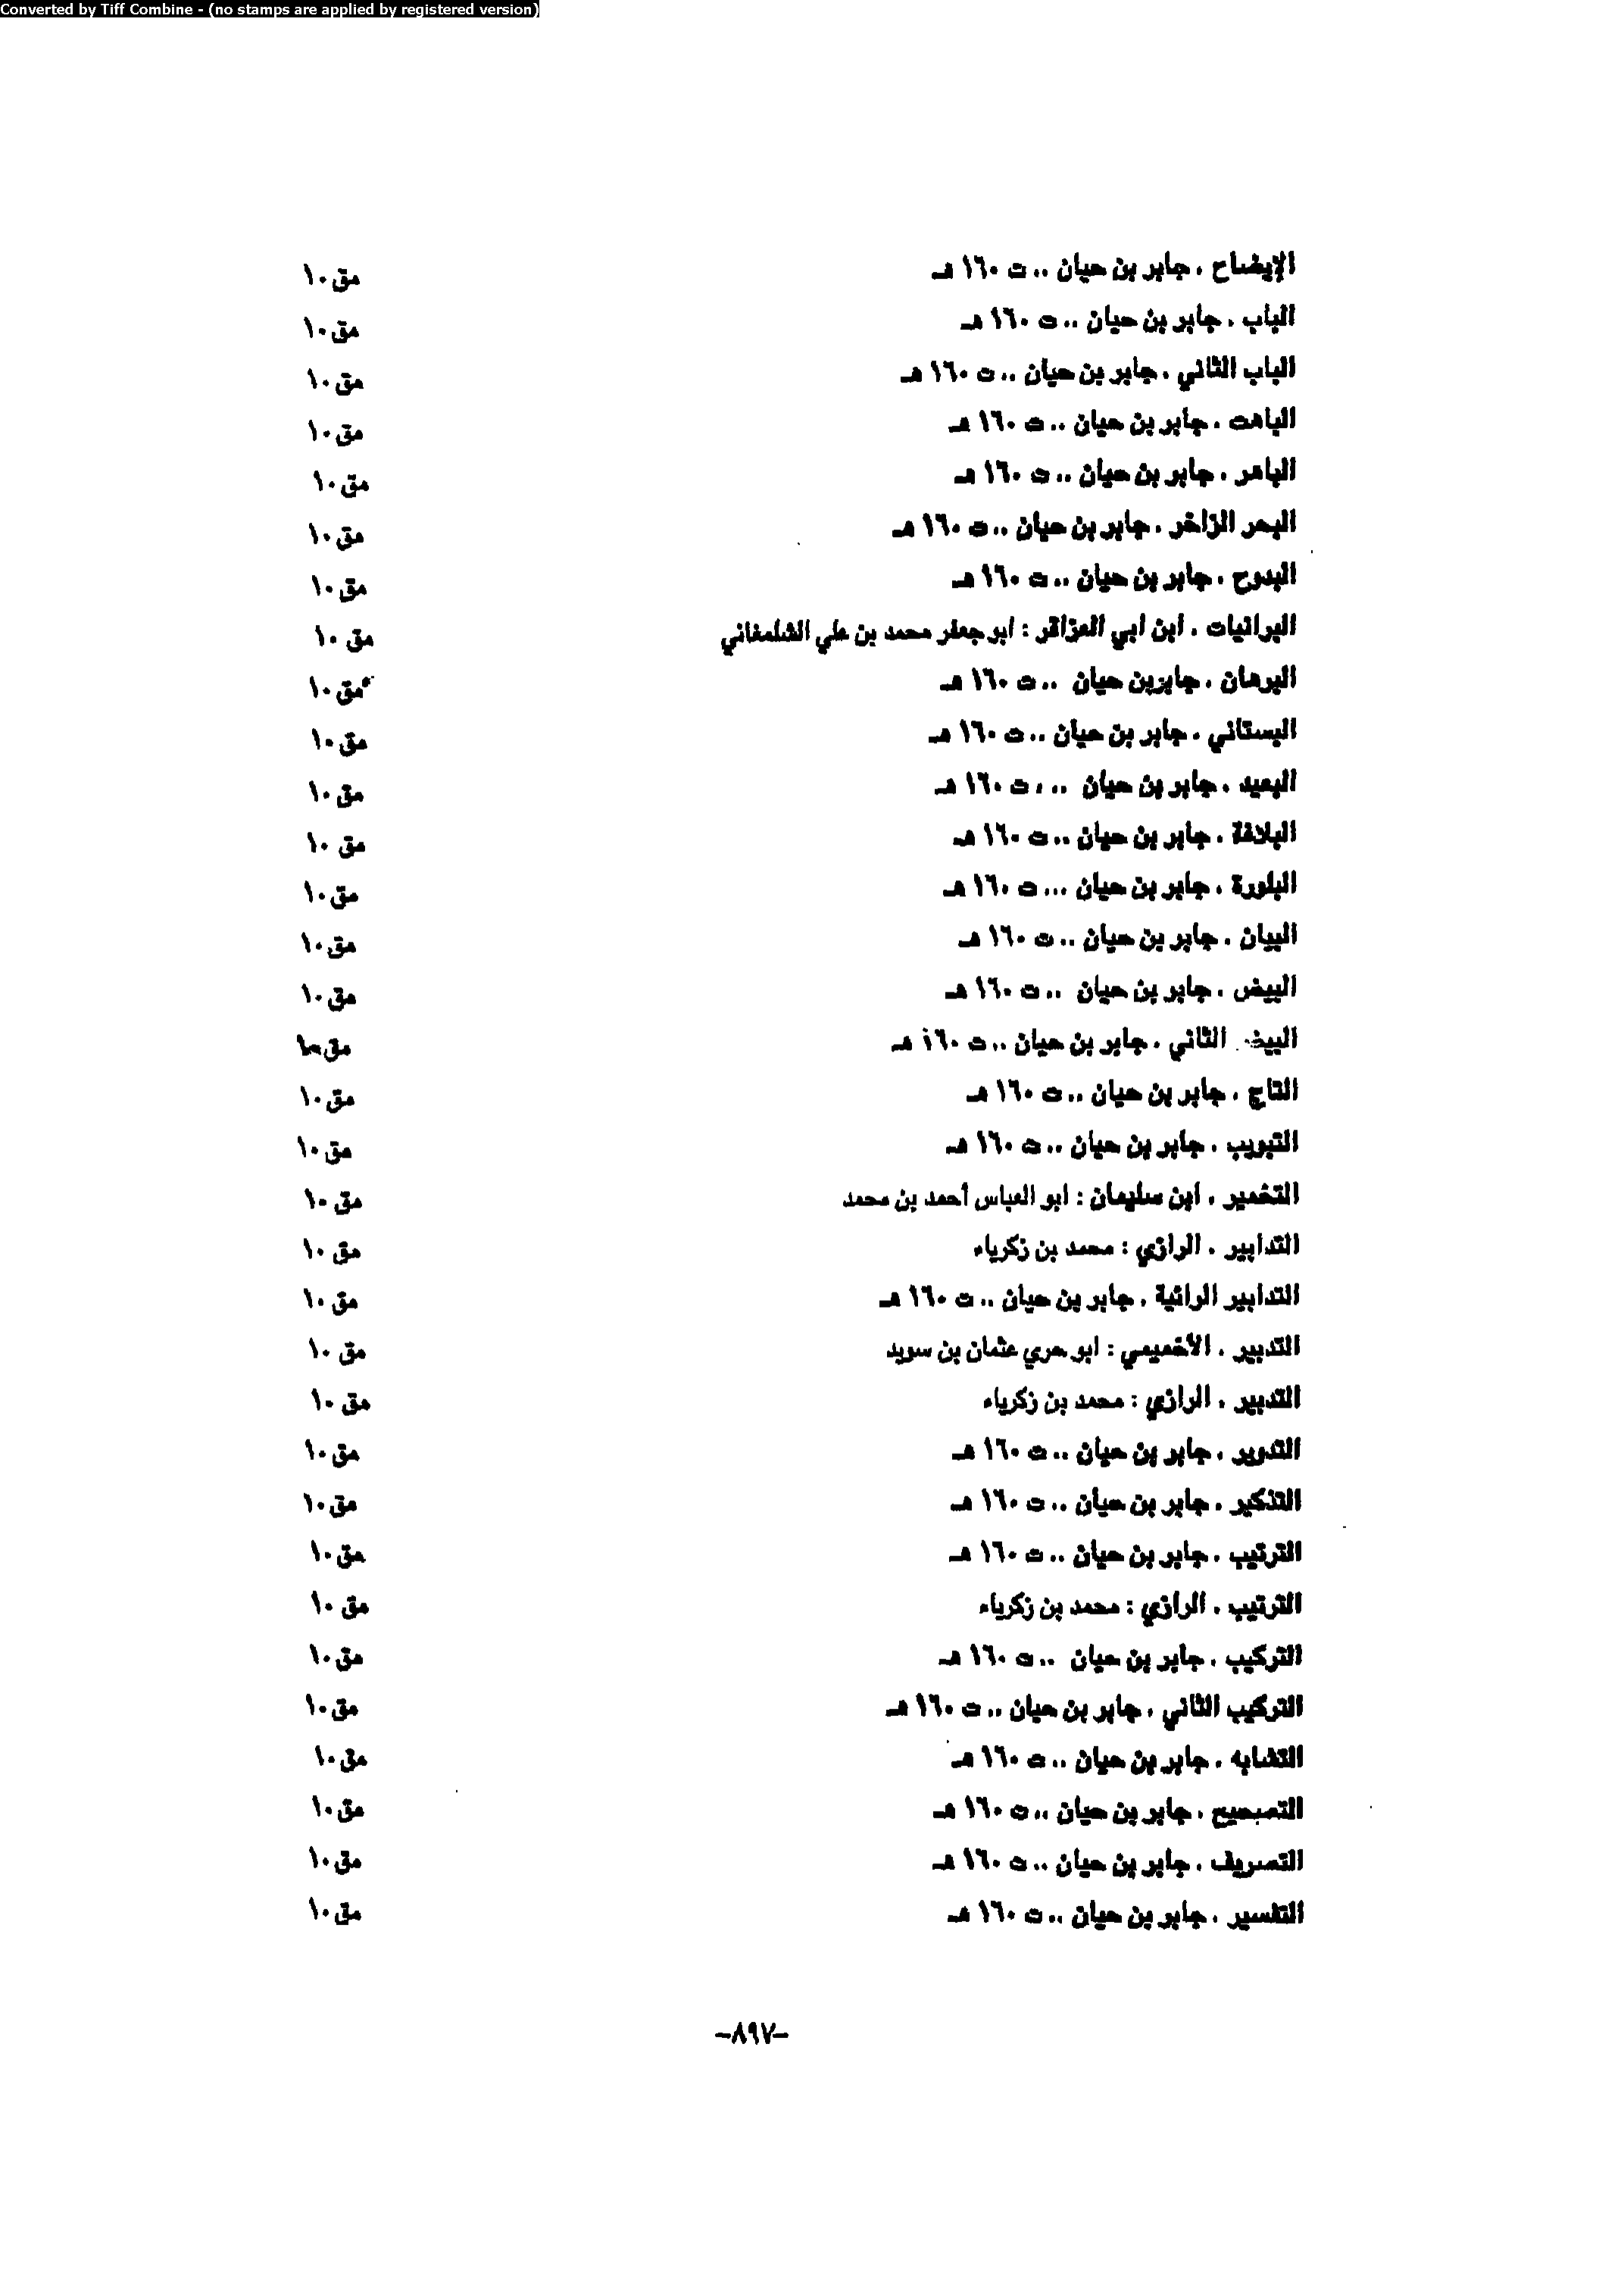 Converted by Tiff Combine - (no stamps are applied by registered version)
الإيضاح . جابر بن حيان .. ت ١٦٠ هـ مق ١٠
الباب . جابر بن حيان .. ت ١٦٠ هـ مق ١٠
الباب الثاني . جابر بن حيان .. ت ١٦٠ هـ مق ١٠
الباهت . جابر بن حيان .. ت ١٦٠ هـ مق ١٠
الباهر . جابر بن حيان .. ت ١٦٠ هـ مق ١٠
البحر الزاخر . جابر بن حيان .. ت ١٦٠ هـ مق ١٠
البدوح . جابر بن حيان .. ت ١٦٠ هـ مق ١٠
البرانيات . ابن ابي العزاقر : ابو جعفر محمد بن علي الشلمغاني مق ١٠
البرهان . جابر بن حيان .. ت ١٦٠ هـ مق ١٠
البستاني . جابر بن حيان .. ت ١٦٠ هـ مق ١٠
البعيد . جابر بن حيان .. ، ت ١٦٠ هـ مق ١٠
البلاغة . جابر بن حيان .. ت ١٦٠ هـ مق ١٠
البلورة . جابر بن حيان ... ت ١٦٠ هـ مق ١٠
البيان . جابر بن حيان .. ت ١٦٠ هـ مق ١٠
البيض . جابر بن حيان .. ت ١٦٠ هـ مق ١٠
البيض الثاني . جابر بن حيان .. ت ١٦٠ هـ مق ١٠
التاج . جابر بن حيان .. ت ١٦٠ هـ مق ١٠
التبويب . جابر بن حيان .. ت ١٦٠ هـ مق ١٠
التخمير . ابن سليمان : ابو العباس أحمد بن محمد مق ١٠
التدابير . الرازي : محمد بن زكرياء مق ١٠
التدابير الرائية . جابر بن حيان .. ت ١٦٠ هـ مق ١٠
التدبير . الأخميمي : ابو حري عثمان بن سويد مق ١٠
التدبير . الرازي : محمد بن زكرياء مق ١٠
التدوير . جابر بن حيان .. ت ١٦٠ هـ مق ١٠
التذكير . جابر بن حيان .. ت ١٦٠ هـ مق ١٠
الترتيب . جابر بن حيان .. ت ١٦٠ هـ مق ١٠
الترتيب . الرازي : محمد بن زكرياء مق ١٠
التركيب . جابر بن حيان .. ت ١٦٠ هـ مق ١٠
التركيب الثاني . جابر بن حيان .. ت ١٦٠ هـ مق ١٠
التشابه . جابر بن حيان .. ت ١٦٠ هـ مق ١٠
التصحيح . جابر بن حيان .. ت ١٦٠ هـ مق ١٠
التصريف . جابر بن حيان .. ت ١٦٠ هـ مق ١٠
التفسير . جابر بن حيان .. ت ١٦٠ هـ مق ١٠
-٨٩٧-